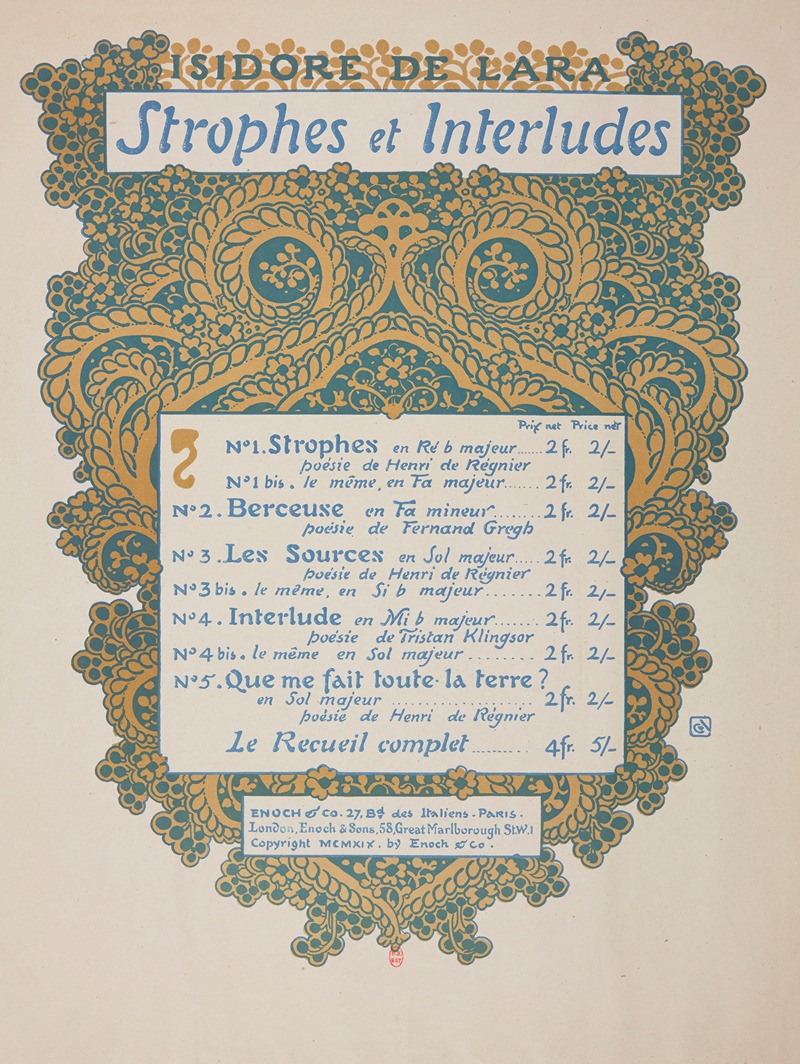 ISIDORE DE LARA
Strophes et Interludes
Prix net Price net
No1. Strophes en Ré b majeur...... 2 fr. 2/-
poésie de Henri de Régnier
No1 bis. le même, en Fa majeur....... 2 fr. 2/-
No2. Berceuse en Fa mineur........ 2 fr. 2/-
poésie de Fernand Gregh
No3. Les Sources en Sol majeur..... 2 fr. 2/-
poésie de Henri de Régnier
No3 bis. le même, en Si b majeur........ 2 fr. 2/-
No4. Interlude en Mi b majeur....... 2 fr. 2/-
poésie de Tristan Klingsor
No4 bis. le même en Sol majeur ......... 2 fr. 2/-
No5. Que me fait toute la terre ?
en Sol majeur .................. 2 fr. 2/-
poésie de Henri de Régnier
Le Recueil complet......... 4 fr. 5/-
ENOCH & Co. 27, Bd des Italiens. PARIS.
London, Enoch & Sons, 58, Great Marlborough St. W.1
Copyright MCMXIX. by Enoch & Co.